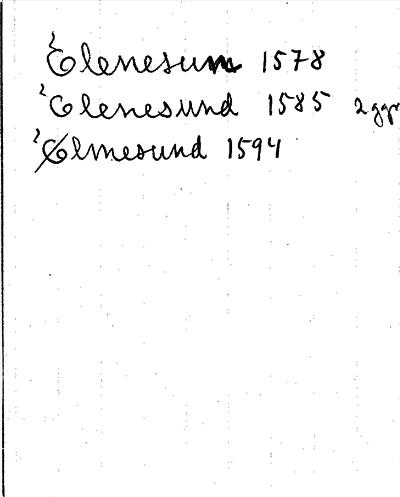 Elenesum 1578
Elenesund 1585 2 ggr
Elmesund 1594